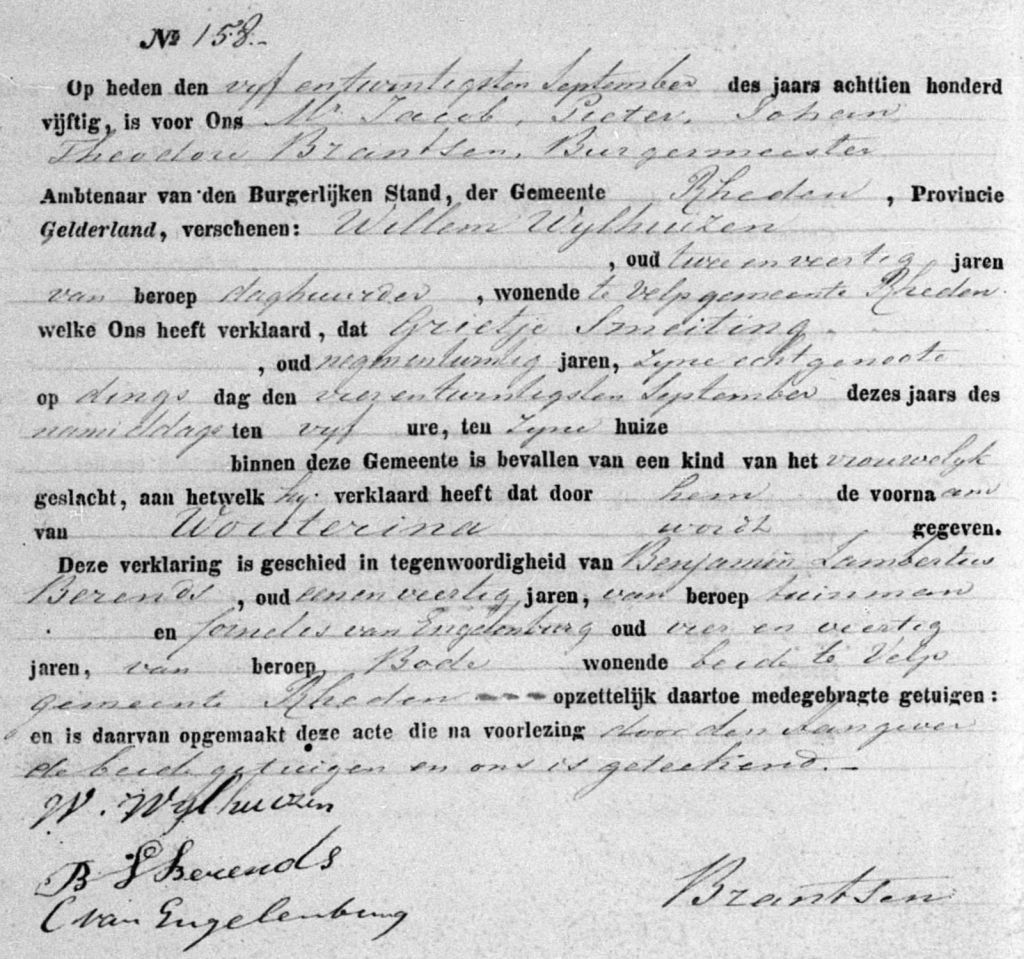 No 158.-
Op heden den vyf en twintigsten September des jaars achttien honderd
vijftig, is voor Ons Mr Jacob, Pieter, Johan
Theodore Brantsen, Burgermeester
Ambtenaar van den Burgerlijken Stand, der Gemeente Rheden, Provincie
Gelderland, verschenen: Willem Wylhuizen
, oud twee en veertig jaren
van beroep daghuurder, wonende te Velp gemeente Rheden
welke Ons heeft verklaard, dat Grietje Smeiting
, oud negenentwintig jaren, zyne echtgenoote
op dings dag den vier en twintigsten September dezes jaars des
namiddags ten vyf ure, ten zyne huize
binnen deze Gemeente is bevallen van een kind van het vrouwelyk
geslacht, aan hetwelk hy verklaard heeft dat door hem de voornaam
van Wouterina wordt gegeven.
Deze verklaring is geschied in tegenwoordigheid van Benjamin Lambertus
Berends, oud een en veertig jaren, van beroep tuinman
en Cornelis van Engelenburg oud vier en veertig
jaren, van beroep Bode wonende beide te Velp
gemeente Rheden --- opzettelijk daartoe medegebragte getuigen:
en is daarvan opgemaakt deze acte die na voorlezing door den Aangever
de beide getuigen en ons is geteekend.-
W. Wylhuizen
B L Berends
C van Engelenburg
Brantsen